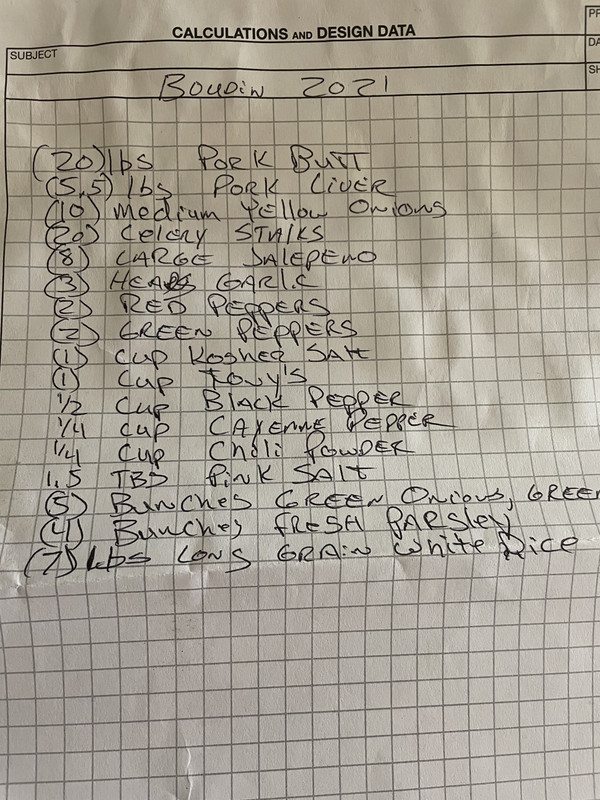 CALCULATIONS AND DESIGN DATA
SUBJECT
Boudin 2021
(20) lbs Pork Butt
(5.5) lbs Pork Liver
(10) Medium Yellow Onions
(20) Celery Stalks
(8) Large Jalepeno
(3) Heads Garlic
(2) Red Peppers
(2) Green Peppers
(1) Cup Kosher Salt
(1) Cup Tony's
1/2 Cup Black Pepper
1/4 Cup Cayenne Pepper
1/4 Cup Chili Powder
1.5 TBS Pink Salt
(5) Bunches Green Onions, Green
(4) Bunches Fresh Parsley
(7) Lbs Long Grain White Rice